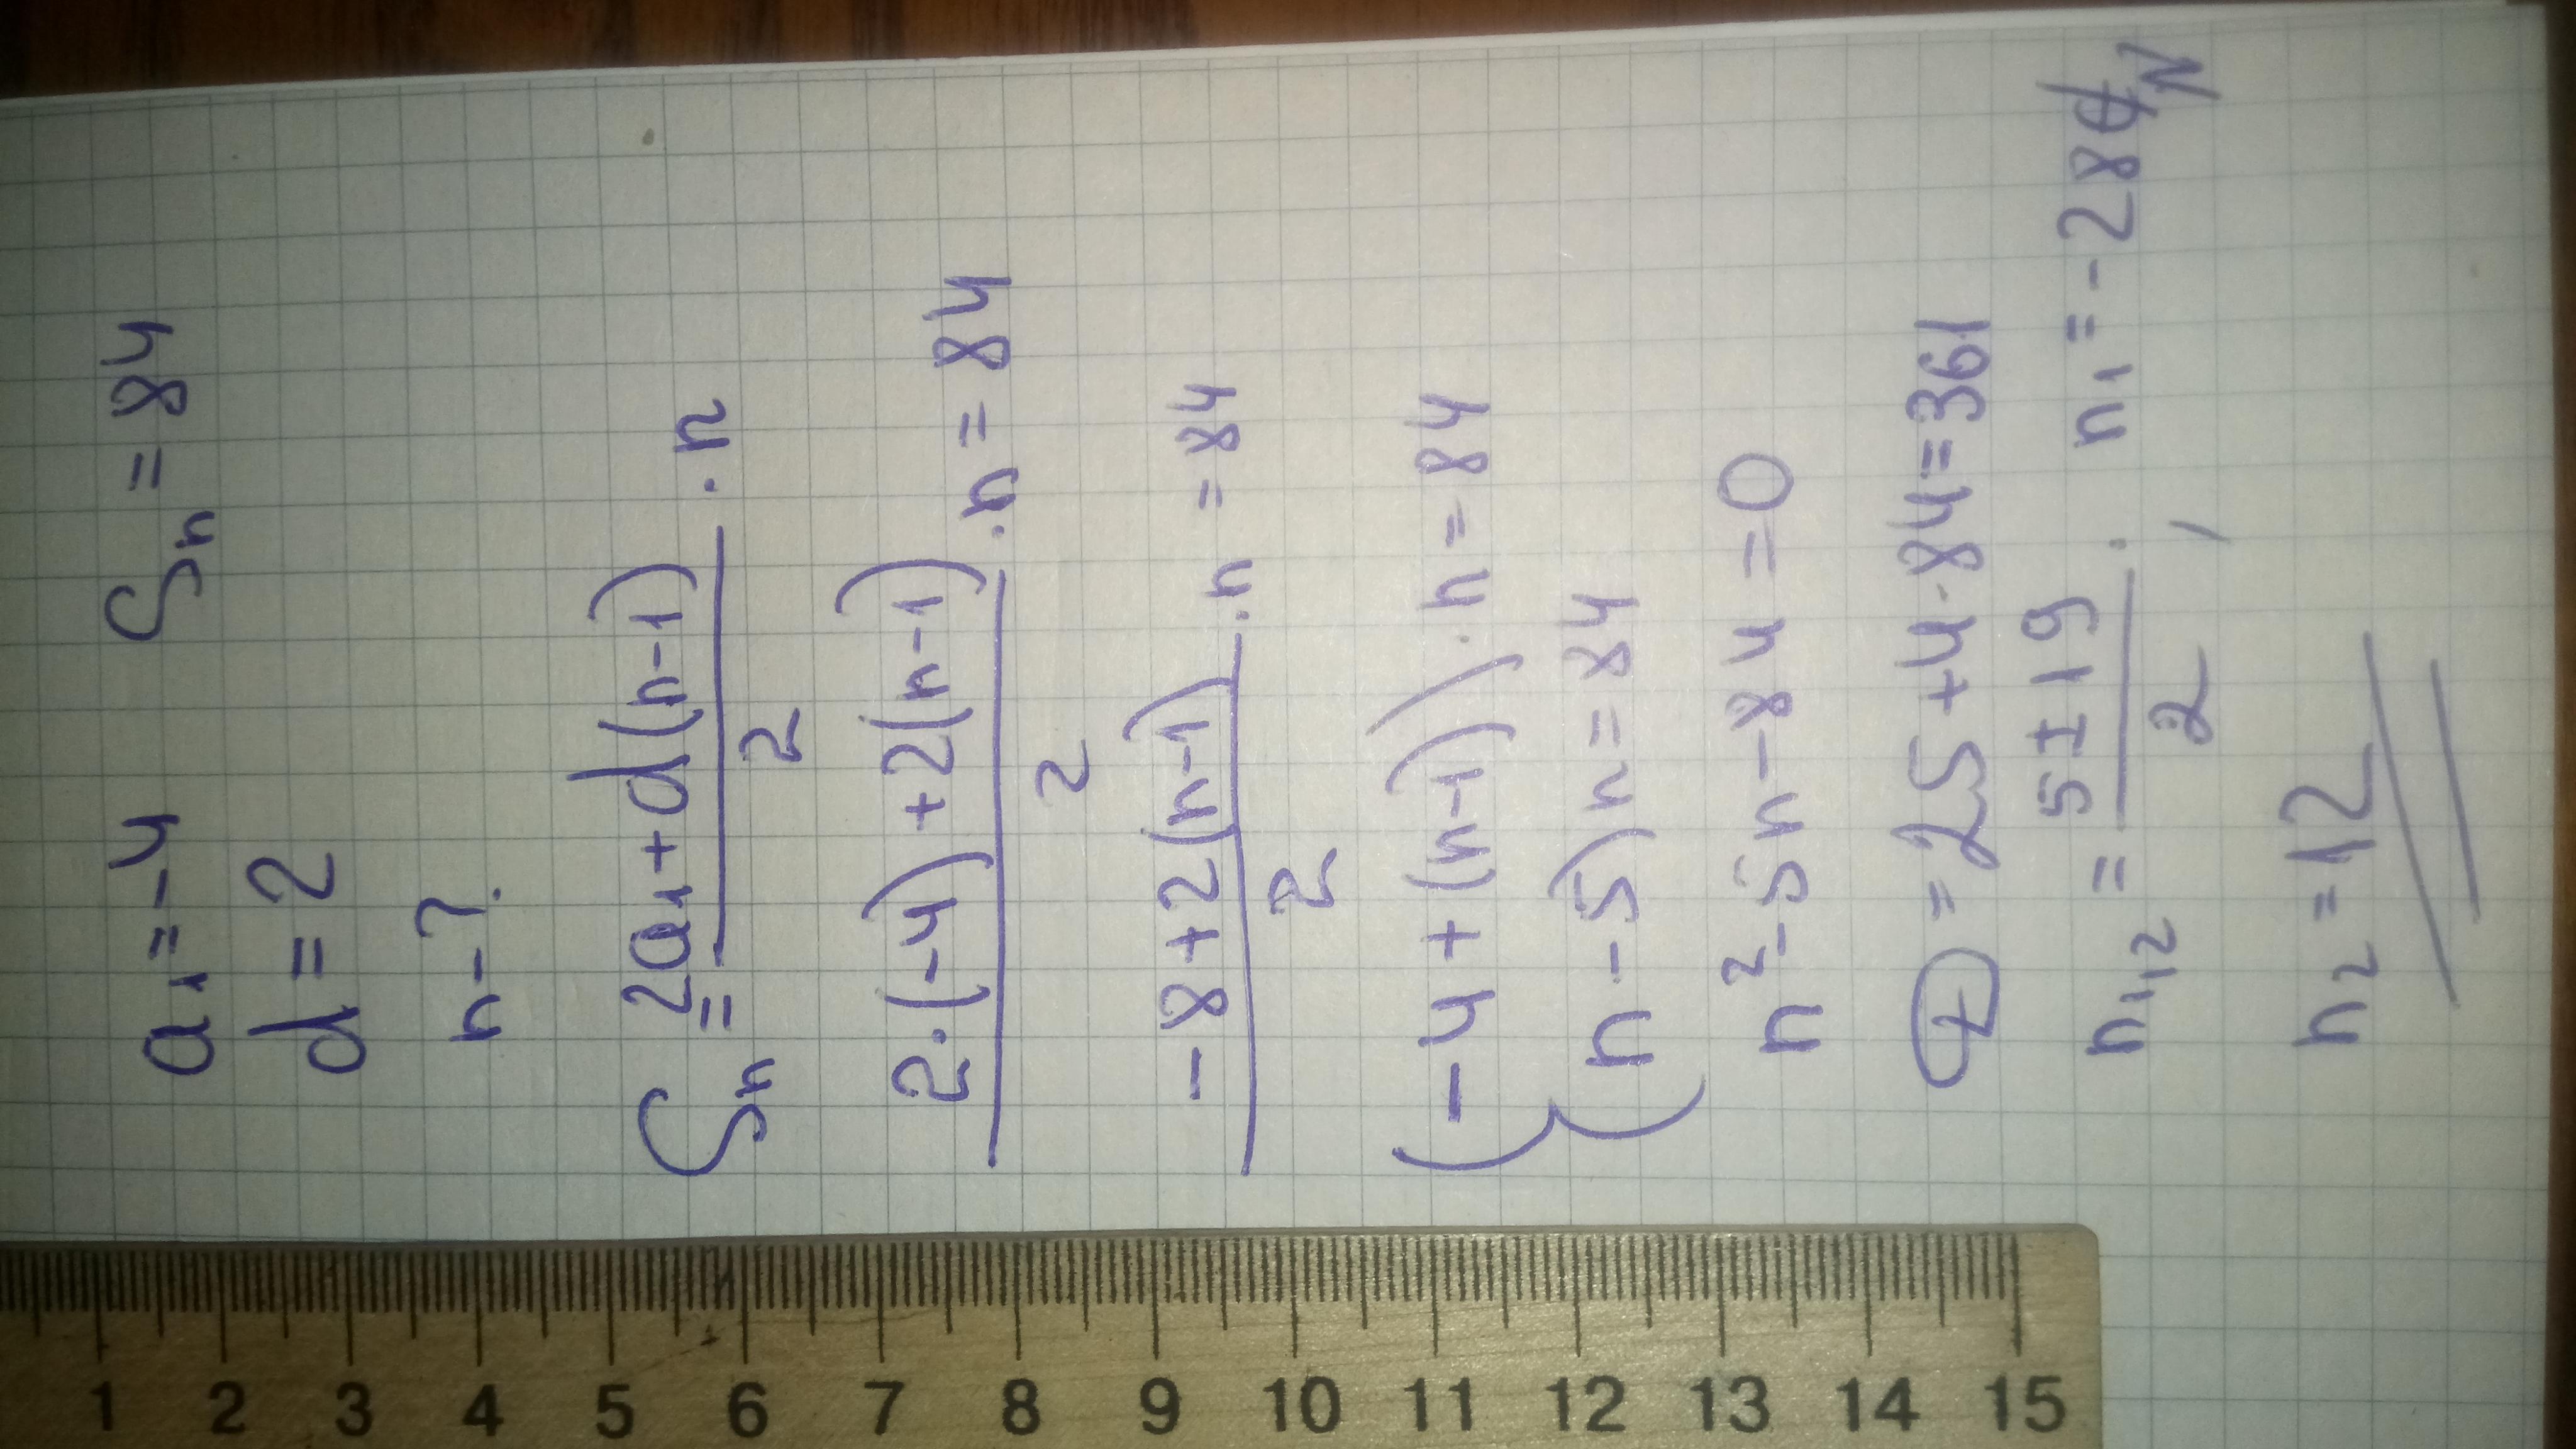 a₁ = -4 Sₙ = 84
d = 2
n - ?
Sₙ = (2a₁ + d(n-1))/2 · n
(2·(-4) + 2(n-1))/2 · n = 84
(-8 + 2(n-1))/2 · n = 84
(-4 + (n-1)) · n = 84
(n - 5)n = 84
n² - 5n - 84 = 0
D = 25 + 4·84 = 361
n₁,₂ = (5 ± 19)/2 ; n₁ = -28 ∉ N
n₂ = 12
1 2 3 4 5 6 7 8 9 10 11 12 13 14 15